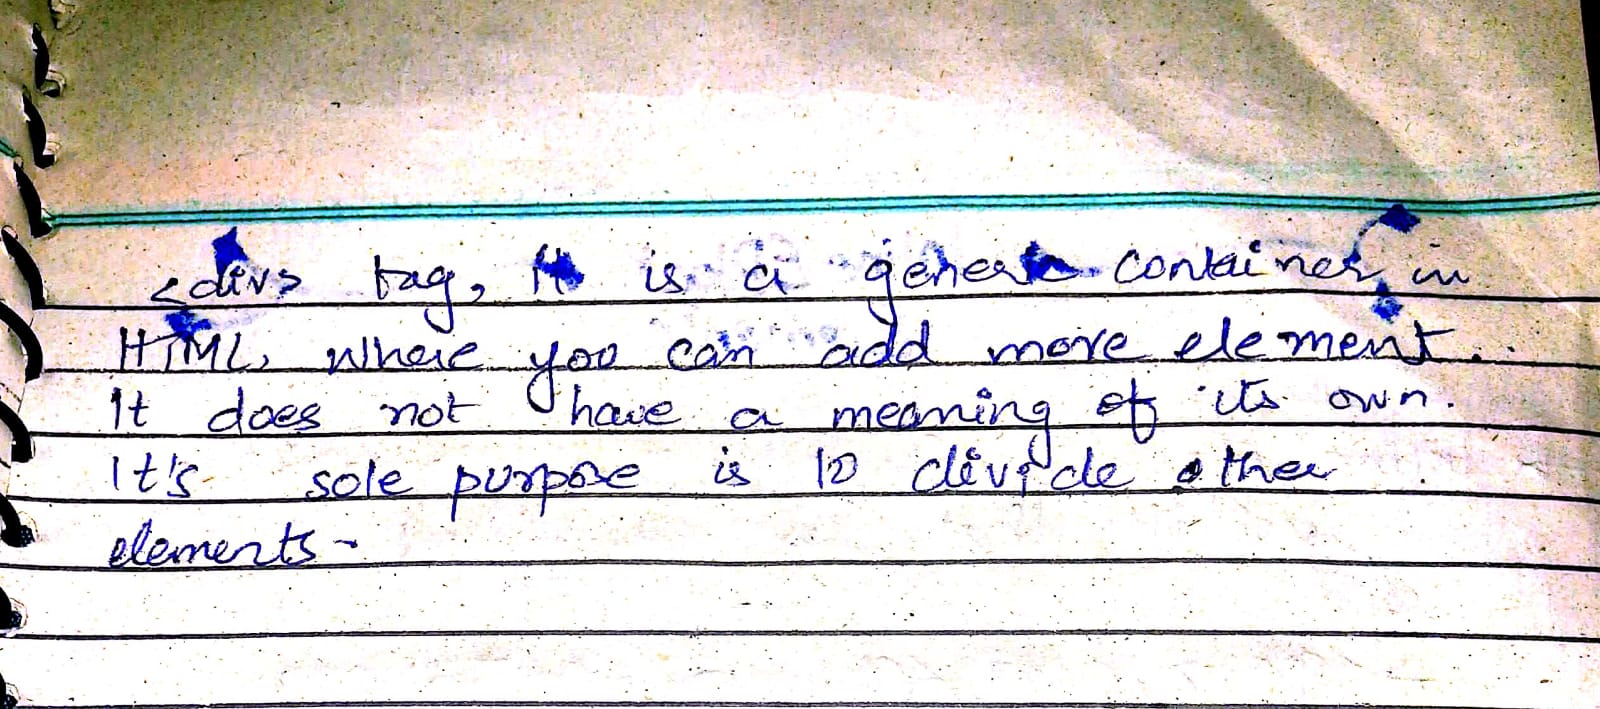 <div> tag, It is a generic container in
HTML, where you can add more element.
It does not have a meaning of its own.
It's sole purpose is to divide other
elements.